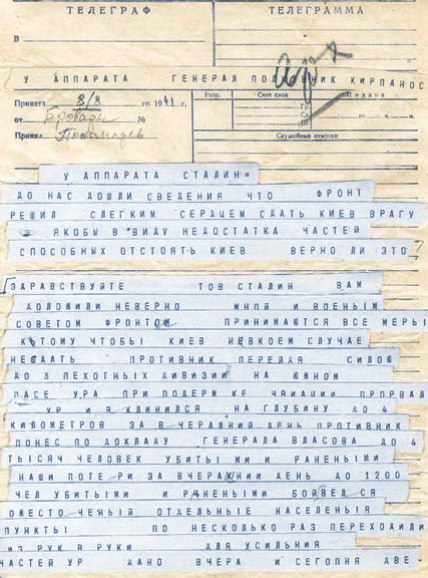 ТЕЛЕГРАФ
ТЕЛЕГРАММА
В
У АППАРАТА ГЕНЕРАЛ ПОЛКОВНИК КИРПАНОС
Принята 8/8 го 1941 г.
от Бровары №
Принял
Разр. Счет слов Подана
Служебные отметки
У АППАРАТА СТАЛИН=
ДО НАС ДОШЛИ СВЕДЕНИЯ ЧТО ФРОНТ
РЕШИЛ СЛЕГКИМ СЕРДЦЕМ СДАТЬ КИЕВ ВРАГУ
ЯКОБЫ В ВИДУ НЕДОСТАТКА ЧАСТЕЙ
СПОСОБНЫХ ОТСТОЯТЬ КИЕВ ВЕРНО ЛИ ЭТО?
ЗАРАВСТВУЙТЕ ТОВ СТАЛИН ВАМ
ДОЛОЖИЛИ НЕВЕРНО МНОЙ И ВОЕНЫМ
СОВЕТОМ ФРОНТОМ ПРИНИМАЮТСЯ ВСЕ МЕРЫ
КЬТОМУ ЧТОБЫ КИЕВ НЕВКОЕМ СЛУЧАЕ
НЕСДАТЬ ПРОТИВНИК ПЕРЕДАЯ СИЛОЮ
ДО 3 ПЕХОТНЫХ ДИВИЗИЙ НА ЮЖНОМ
ПАСЕ УРА ПРИ ПОДЕРЖ КЕ ЧВИАЦИИ ПРОРВАЛ
УР И ВКЛИНИЛСЯ НА ГЛУБИНУ ДО 4
КИЛОМЕТРОВ ЗА ВЧЕРАШНИЙ ДЕНЬ ПРОТИВНИК
ПОНЕС ПО ДОКЛАДУ ГЕНЕРАЛА ВЛАСОВА ДО 4
ТЫСЯЧ ЧЕЛОВЕК УБИТЫМИ И РАНЕНЫМИ
НАШИ ПОТЕ РИ ЗА ВЧЕРАШНИЙ ДЕНЬ ДО 1200
ЧЕЛ УБИТЫМИ И РАНЕНЫМИ БОЙВЕЛ СЯ
ОМЕСТО ЧЕНЫЙ ОТДЕЛЬНЫЕ НАСЕЛЕНЫЯ
ПУНКТЫ ПО НЕСКОЛЬКО РАЗ ПЕРЕХОДИЛИ
ИЗ РУК В РУКИ ДЛЯ УСИЛЬНИЯ
ЧАСТЕЙ УР ДАНО ВЧЕРА И СЕГОПНЯ ДВЕ